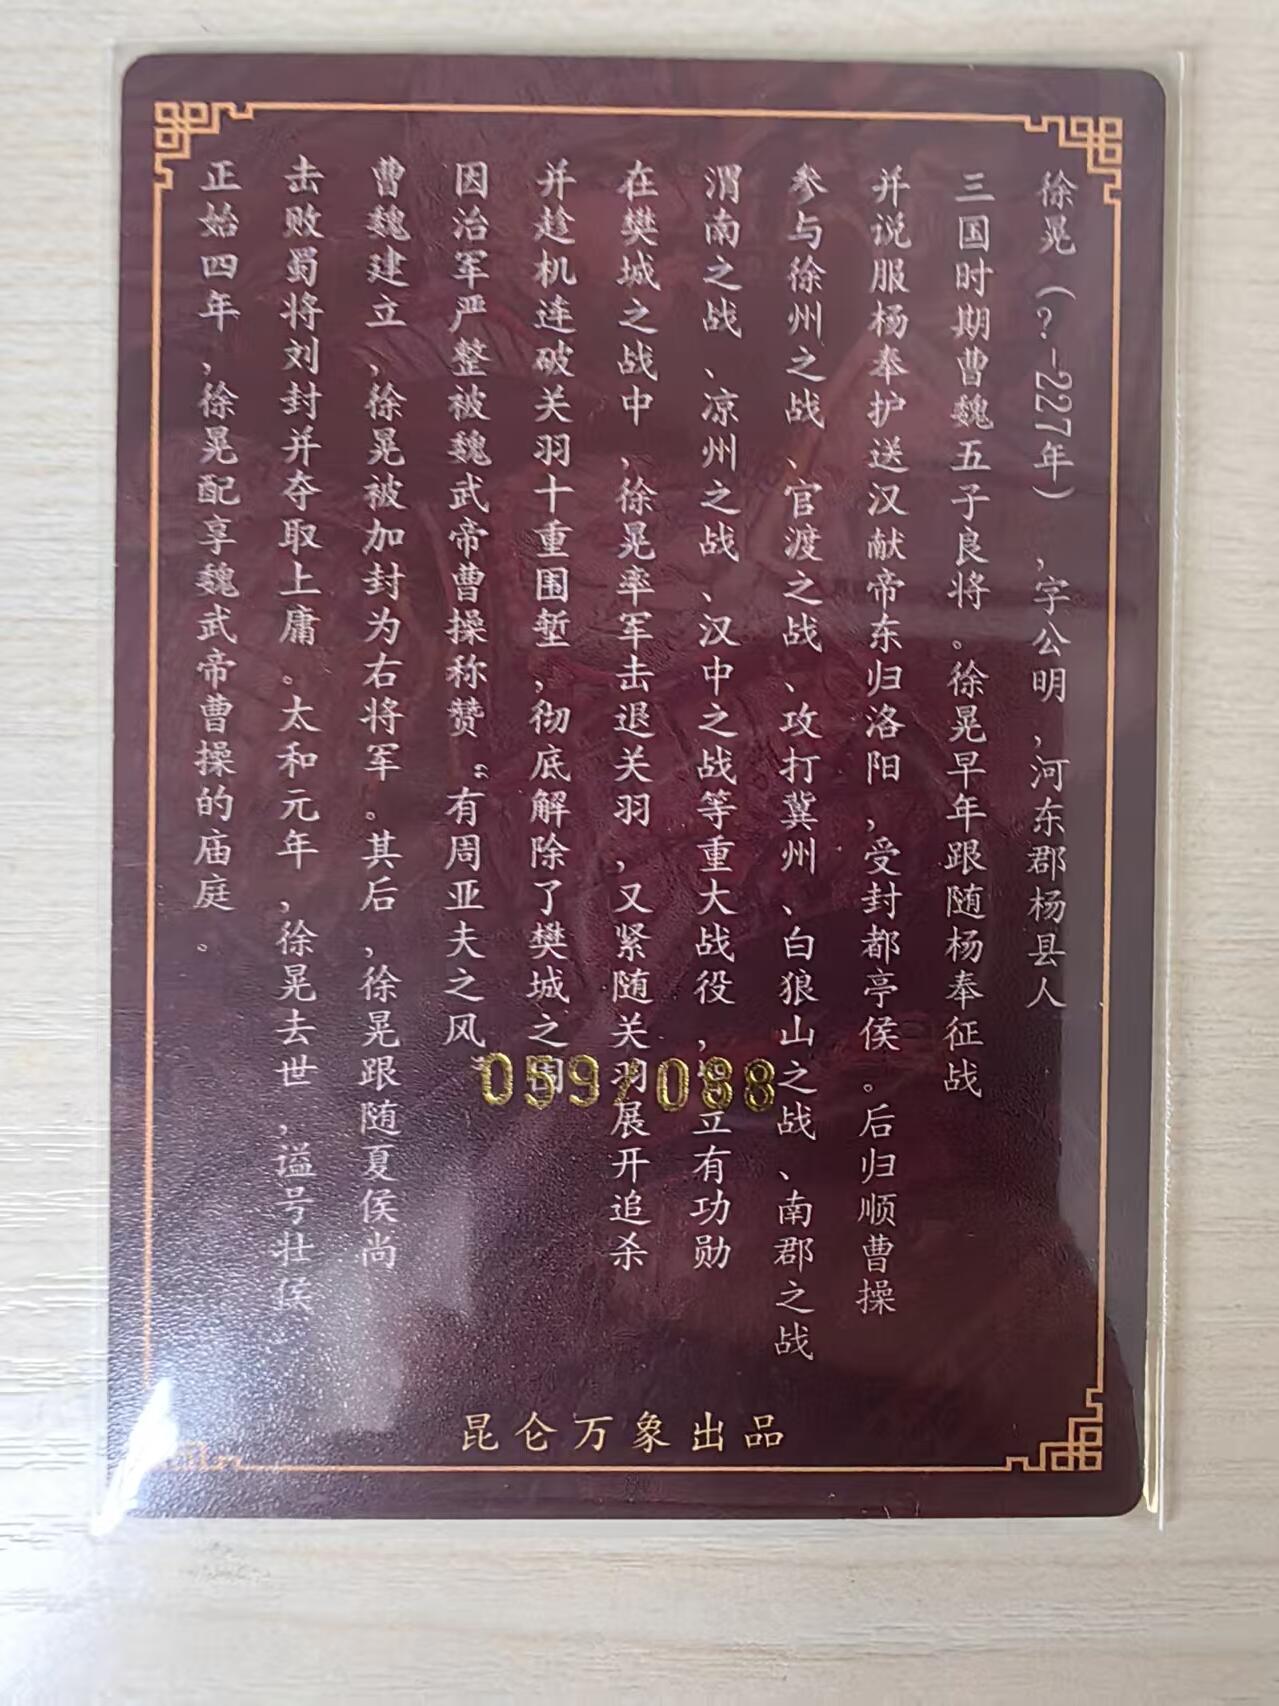 徐晃（？-227年），字公明，河东郡杨县人
三国时期曹魏五子良将。徐晃早年跟随杨奉征战
并说服杨奉护送汉献帝东归洛阳，受封都亭侯。后归顺曹操
参与徐州之战、官渡之战、攻打冀州、白狼山之战、南郡之战
渭南之战、凉州之战、汉中之战等重大战役，立有功勋
在樊城之战中，徐晃率军击退关羽，又紧随关羽展开追杀
并趁机连破关羽十重围堑，彻底解除了樊城之围
因治军严整被魏武帝曹操称赞“有周亚夫之风”。
曹魏建立，徐晃被加封为右将军。其后，徐晃跟随夏侯尚
击败蜀将刘封并夺取上庸。太和元年，徐晃去世，谥号壮侯
正始四年，徐晃配享魏武帝曹操的庙庭。
059/088
昆仑万象出品